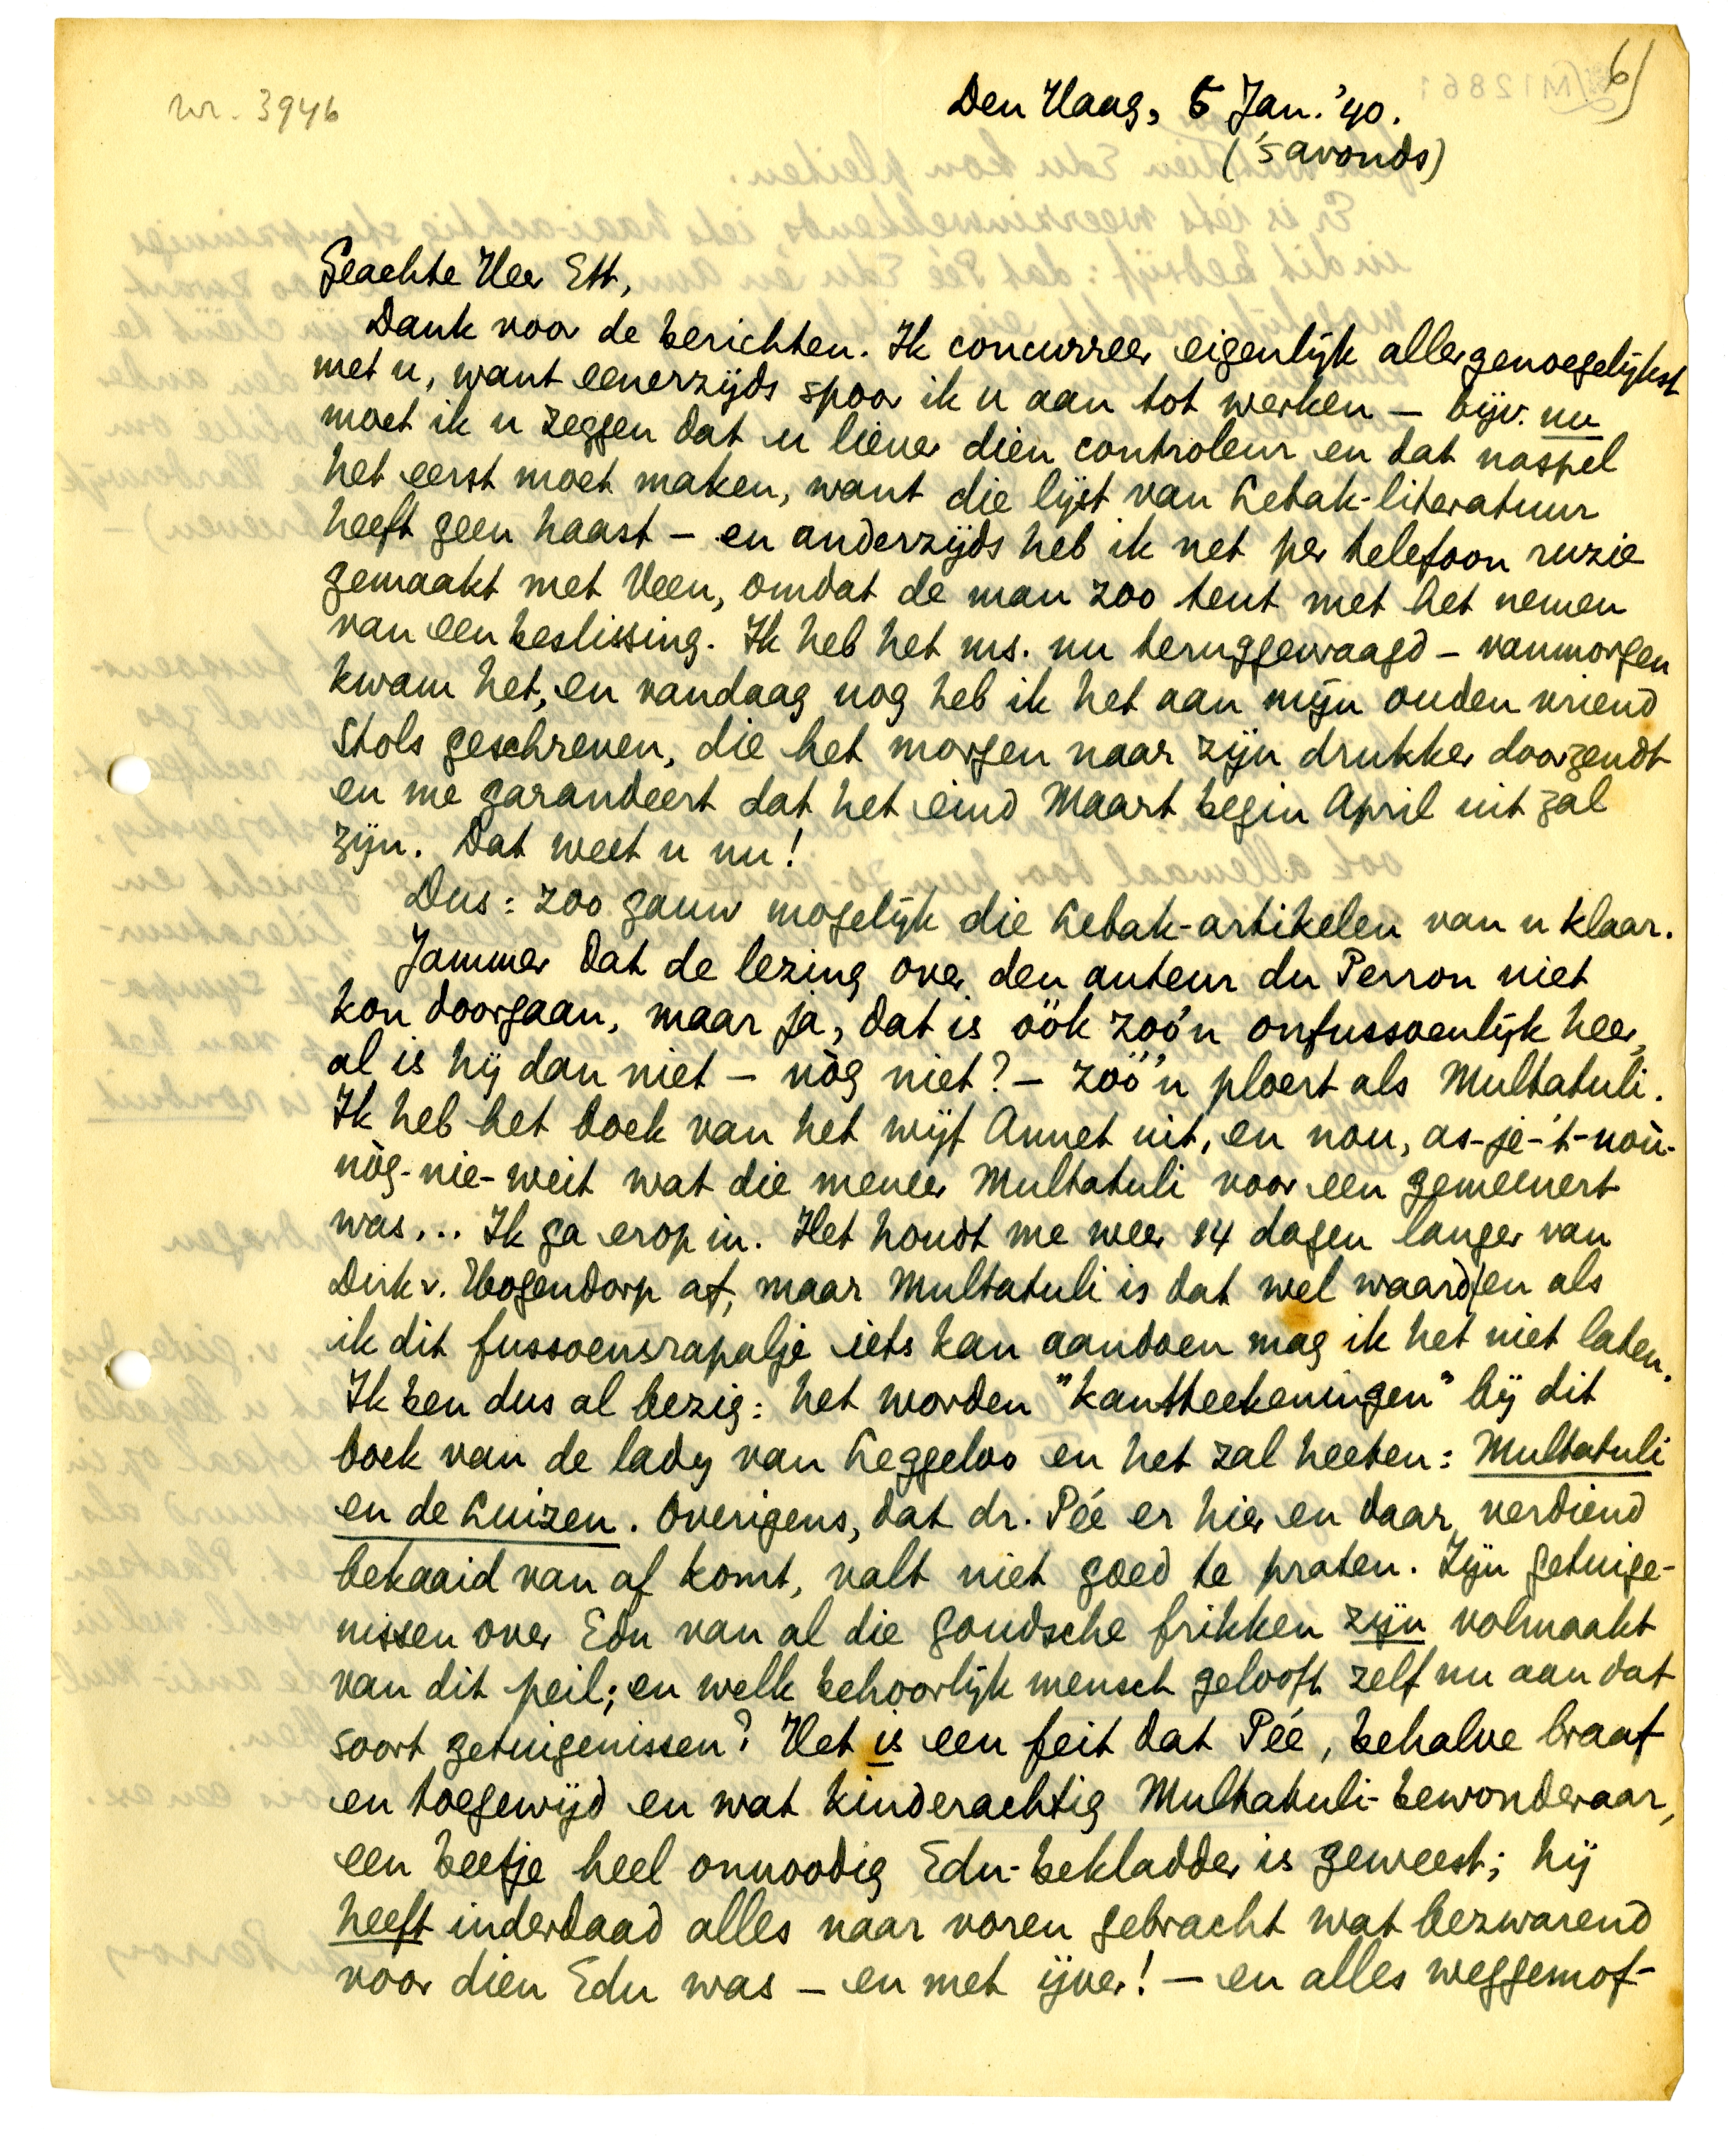 nr. 3946
6)
M12861
Den Haag, 5 Jan. '40.
('s avonds)
Geachte Heer Ett,
Dank voor de berichten. Ik concurreer eigenlijk allergenoegelijkst
met u, want eenerzijds spoor ik u aan tot werken – bijv. nu
moet ik u zeggen dat u liever dien controleur en dat naspel
het eerst moet maken, want die lijst van Lebak-literatuur
heeft geen haast – en anderzijds heb ik net per telefoon ruzie
gemaakt met Veen, omdat de man zoo teut met het nemen
van een beslissing. Ik heb het ms. nu teruggevraagd – vanmorgen
kwam het, en vandaag nog heb ik het aan mijn ouden vriend
Stols geschreven, die het morgen naar zijn drukker doorzendt
en me garandeert dat het eind Maart begin April uit zal
zijn. Dat weet u nu!
Dus: zoo gauw mogelijk die Lebak-artikelen van u klaar.
Jammer dat de lezing over den auteur du Perron niet
kon doorgaan, maar ja, dat is óók zoo'n onfussoenlijk heer,
al is hij dan niet – nòg niet? – zóó'n ploert als Multatuli.
Ik heb het boek van het wijf Annet uit, en nou, as-je-'t-noù-
nòg-nie-weit wat die meneer Multatuli voor een gemeenert
was... Ik ga erop in. Het houdt me weer 14 dagen langer van
Dirk v. Hogendorp af, maar Multatuli is dat wel waard/en als
ik dit fussoensrapalje iets kan aandoen mag ik het niet laten.
Ik ben dus al bezig: het worden "kantteekeningen" bij dit
boek van de lady van Leggeloo en het zal heeten: Multatuli
en de Luizen. Overigens, dat dr. Pée er hier en daar verdiend
bekaaid van af komt, valt niet goed te praten. Zijn getuige-
nissen over Edu van al die goudsche frikken zijn volmaakt
van dit peil; en welk behoorlijk mensch gelooft zelf nu aan dat
soort getuigenissen? Het is een feit dat Pée, behalve braaf
en toegewijd en wat kinderachtig Multatuli-bewonderaar,
een beetje heel onnoodig Edu-bekladder is geweest; hij
heeft inderdaad alles naar voren gebracht wat bezwarend
voor dien Edu was – en met ijver! – en alles weggemof-